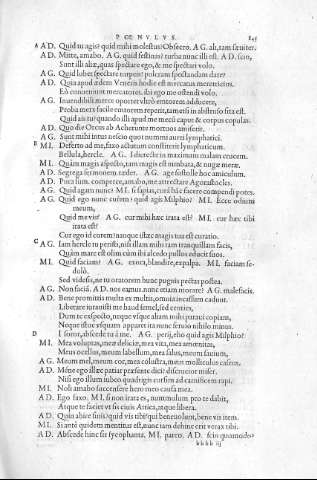 P OE N V L V S. 845
A A D. Quid tu agis? quid mihi molestus? Obsecro. A G. ah, tam sæuiter.
A D. Mitte, amabo. A G. quid festinas? turba nunc illi est. A D. scio,
Sunt illi aliæ, quas spectare ego, & me spectari volo.
A G. Quid lubet spectare turpes? pulcram spectandam dare?
A D. Quia apud ædem Veneris hodie est mercatus meretricius.
Eò conueniunt mercatores. ibi ego me ostendi volo.
A G. Inuendibili merci oportet vltrò emtorem adducere,
Proba merx facile emtorem reperit, tametsi in abstruso sita est.
Quid ais tu? quando illi apud me mecū caput & corpus copulas.
A D. Quo die Orcus ab Acherunte mortuos amiserit.
A G. Sunt mihi intus nescio quot nummi aurei lymphatici.
B M I. Deferto ad me, faxo actutum constiterit lymphaticum.
Bellula, hercle. A G. I directe in maximam malam crucem.
M I. Quàm magis aspecto, tam magis est nimbata, & nugæ meræ.
A D. Segrega sermonem. tædet. A G. age sustolle hoc amiculum.
A D. Pura sum. comperce, amabo, me attrectare Agorastocles.
A G. Quid agam nunc? M I. si sapias, curā hāc facere compendi potes.
A G. Quid ego nunc curem? quid agis Milphio? M I. Ecce odium
meum,
Quid me vis? A G. cur mihi hæc irata est? M I. cur hæc tibi
irata est?
Cur ego id corem? nanque istæc magis tua est curatio.
C A G. Iam hercle tu peristi, nis illam mihi tam tranquillam facis,
Quàm mare est olim cùm ibi alcedo pullos educit suos.
M I. Quid faciam? A G. exora, blandire, expalpa. M I. faciam se-
dulò.
Sed vide sis, ne tu oratorem hunc pugnis pectas postea.
A G. Non faciā. A D. nos eamus. nunc etiam morare? A G. malefacis.
A D. Bene promittis multa ex multis, omnia incassum cadunt.
Liberare iurauisti me haud semel, sed centies,
Dum te exspecto, neque vsque aliam mihi paraui copiam,
Neque istuc vsquam apparet ita nunc seruio nihilo minus.
D I soror, abscede tu à me. A G. perij, echo quid agis Milphio?
M I. Mea voluptas, meæ deliciæ, mea vita, mea amœnitas,
Meus ocellus, meum labellum, mea salus, meum sauium,
A G. Meum mel, meum cor, mea colustra, meus molliculus caseus,
A D. Méne ego illæc patiar præsente dici? discrucior miser.
Nisi ego illum iubeo quadrigis cursim ad carnificem rapi.
M I. Noli amabo succensere hero meo causa mea.
A D. Ego faxo. M I. si non irata es, nummulum pro te dabit,
Atque te faciet vt sis ciuis Attica, atque libera.
A D. Quin abire sinis? quid vis tibi? qui beneuolunt, bene vis item.
M I. Si antè quidem mentitus est, nunc iam dehinc erit verax tibi.
A D. Abscede hinc sis sycophanta. M I. pareo. A D. scio quomodo?
bbbb iij